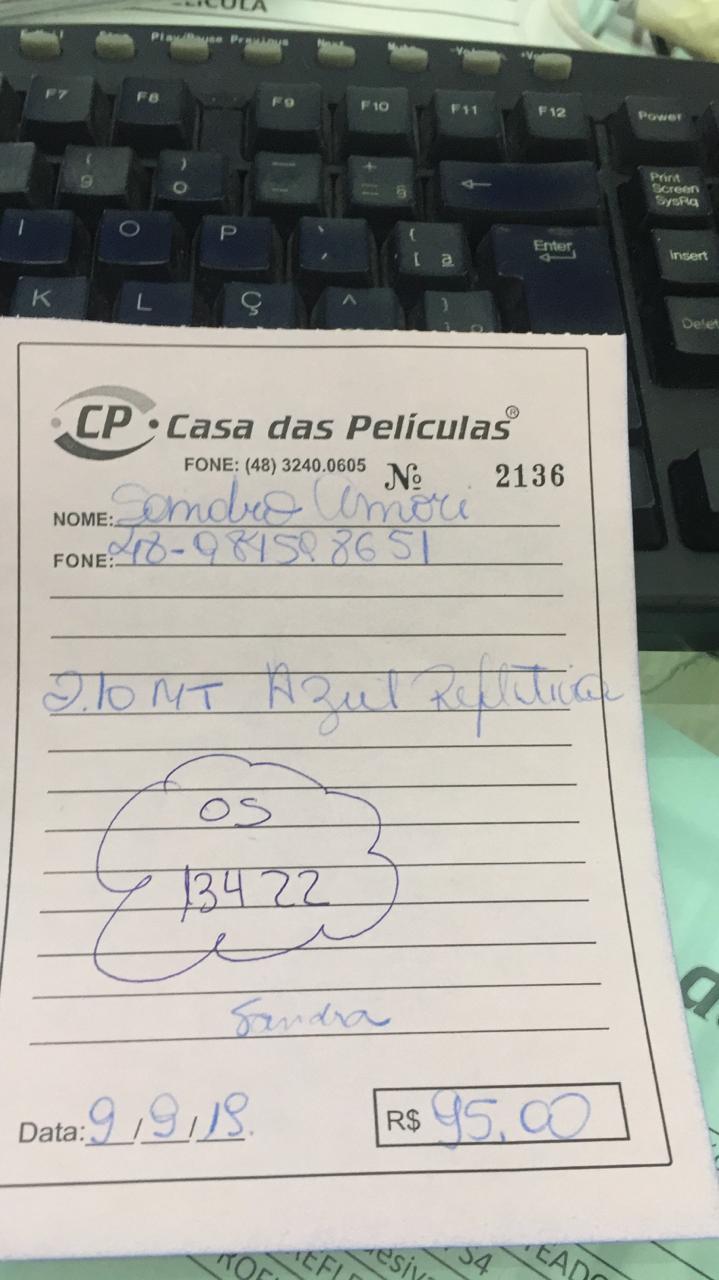 PELÍCULA
Stop Play/Pause Previous Next Mute -Volume +Volume
F7 F8 F9 F10 F11 F12 Power
( 9 ) 0 — - + = § ← Print Screen SysRq
I O P ` ´ { [ ª Enter Insert
K L Ç ^ } ] º Delet
CP Casa das Películas®
FONE: (48) 3240.0605 Nº 2136
NOME: Sandra Amori
FONE: 48-984598651
2.10 MT Azul Refletiva
OS
13422
Sandra
Data: 9/9/19. R$ 95,00